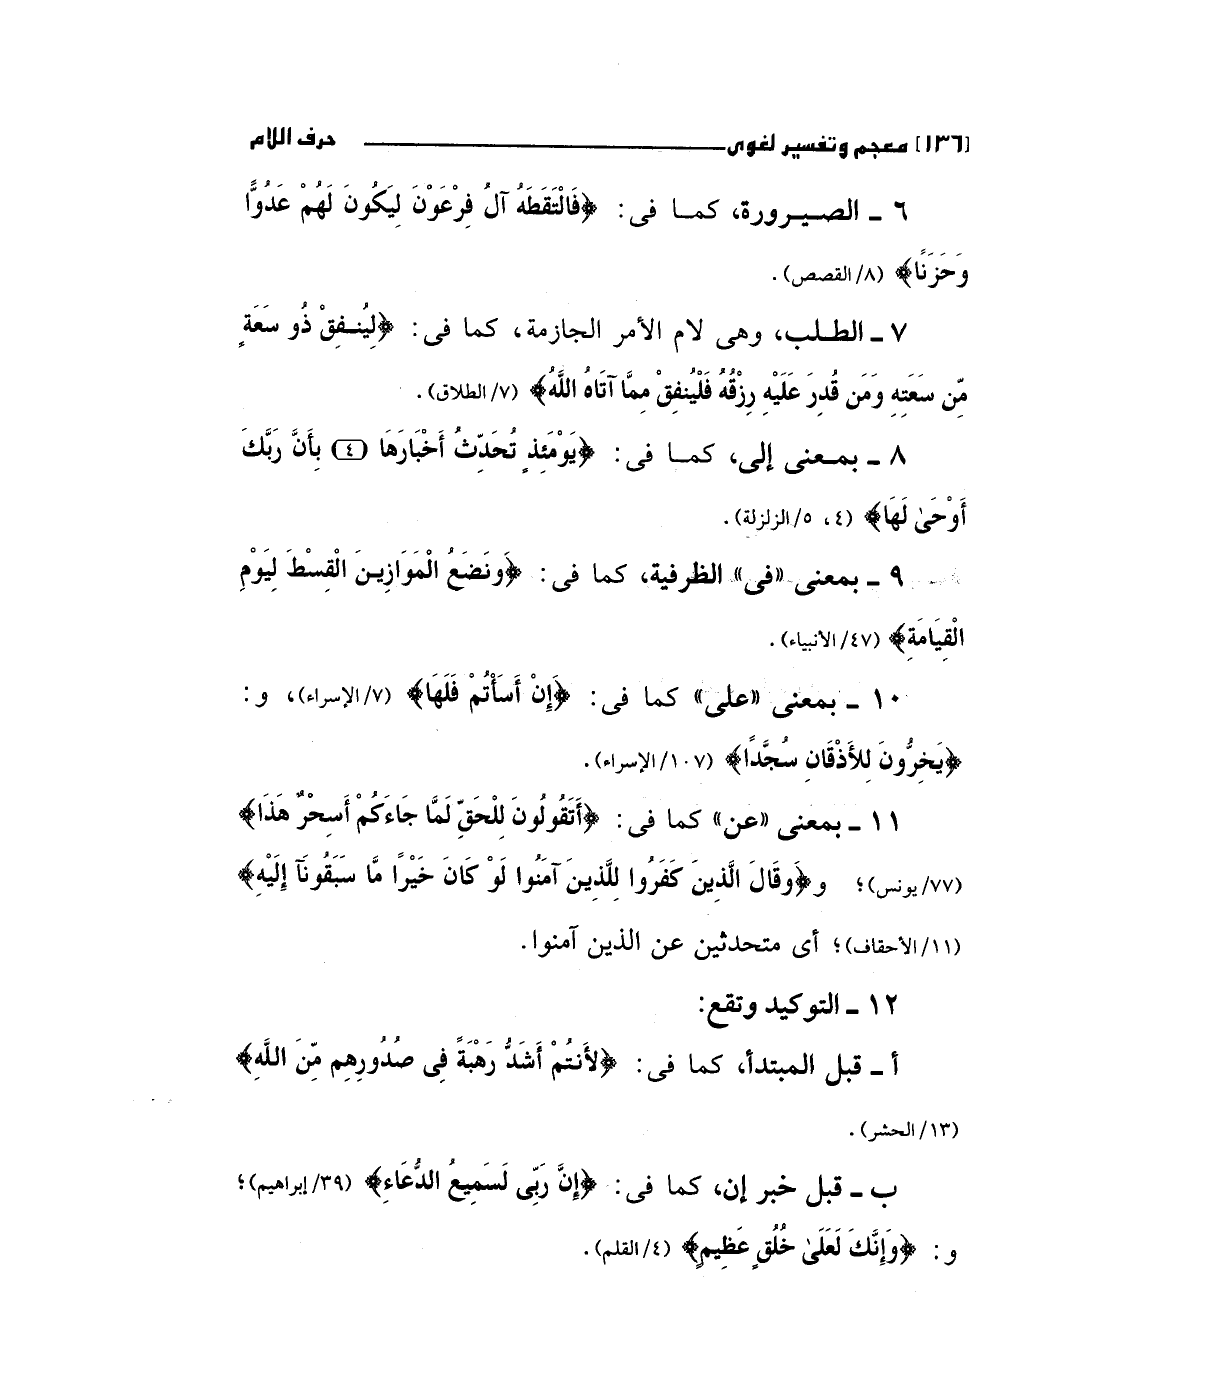 [١٣٦] معجم وتفسير لغوى ـــــــــــ حرف اللام
٦ ـ الصيرورة، كما فى: ﴿فَالْتَقَطَهُ آلُ فِرْعَوْنَ لِيَكُونَ لَهُمْ عَدُوًّا
وَحَزَنًا﴾ (٨/ القصص).
٧ ـ الطلب، وهى لام الأمر الجازمة، كما فى: ﴿لِيُنفِقْ ذُو سَعَةٍ
مِّن سَعَتِهِ وَمَن قُدِرَ عَلَيْهِ رِزْقُهُ فَلْيُنفِقْ مِمَّا آتَاهُ اللَّهُ﴾ (٧/ الطلاق).
٨ ـ بمعنى إلى، كما فى: ﴿يَوْمَئِذٍ تُحَدِّثُ أَخْبَارَهَا (٤) بِأَنَّ رَبَّكَ
أَوْحَىٰ لَهَا﴾ (٤، ٥/ الزلزلة).
٩ ـ بمعنى «فى» الظرفية، كما فى: ﴿وَنَضَعُ الْمَوَازِينَ الْقِسْطَ لِيَوْمِ
الْقِيَامَةِ﴾ (٤٧/ الأنبياء).
١٠ ـ بمعنى «على» كما فى: ﴿إِنْ أَسَأْتُمْ فَلَهَا﴾ (٧/ الإسراء)، و:
﴿يَخِرُّونَ لِلأَذْقَانِ سُجَّدًا﴾ (١٠٧/ الإسراء).
١١ ـ بمعنى «عن» كما فى: ﴿أَتَقُولُونَ لِلْحَقِّ لَمَّا جَاءَكُمْ أَسِحْرٌ هَذَا﴾
(٧٧/ يونس)؛ و﴿وَقَالَ الَّذِينَ كَفَرُوا لِلَّذِينَ آمَنُوا لَوْ كَانَ خَيْرًا مَّا سَبَقُونَآ إِلَيْهِ﴾
(١١/ الأحقاف)؛ أى متحدثين عن الذين آمنوا.
١٢ ـ التوكيد وتقع:
أ ـ قبل المبتدأ، كما فى: ﴿لأَنتُمْ أَشَدُّ رَهْبَةً فِى صُدُورِهِم مِّنَ اللَّهِ﴾
(١٣/ الحشر).
ب ـ قبل خبر إن، كما فى: ﴿إِنَّ رَبِّى لَسَمِيعُ الدُّعَاءِ﴾ (٣٩/ إبراهيم)؛
و: ﴿وَإِنَّكَ لَعَلَىٰ خُلُقٍ عَظِيمٍ﴾ (٤/ القلم).